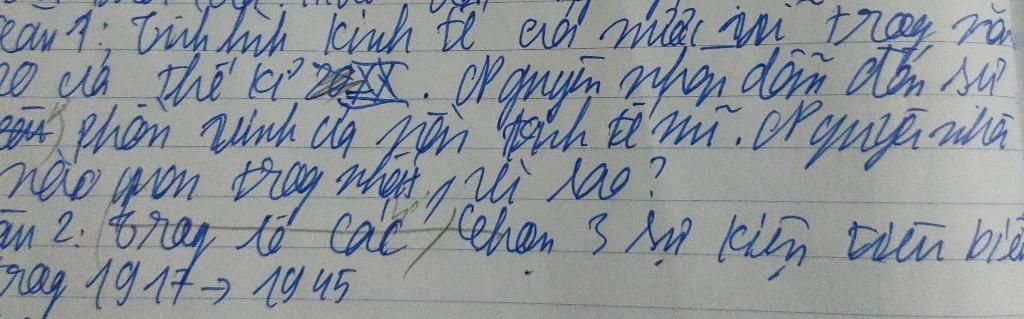 câu 1: Tình hình kinh tế của nước Mĩ trong
20 của thế kỉ XX. Nguyên nhân dẫn đến sự
phồn vinh của nền kinh tế Mĩ. Nguyên nhâ
nào quan trọng nhất, vì sao?
2: trong số các, chọn 3 sự kiện tiêu biể
trong 1917 → 1945